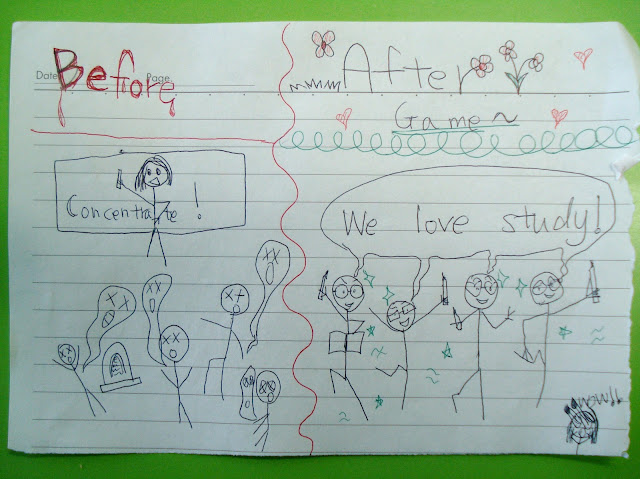 Date
Page
Before
After
Game~
Concentrate!
We love study!
wow!!